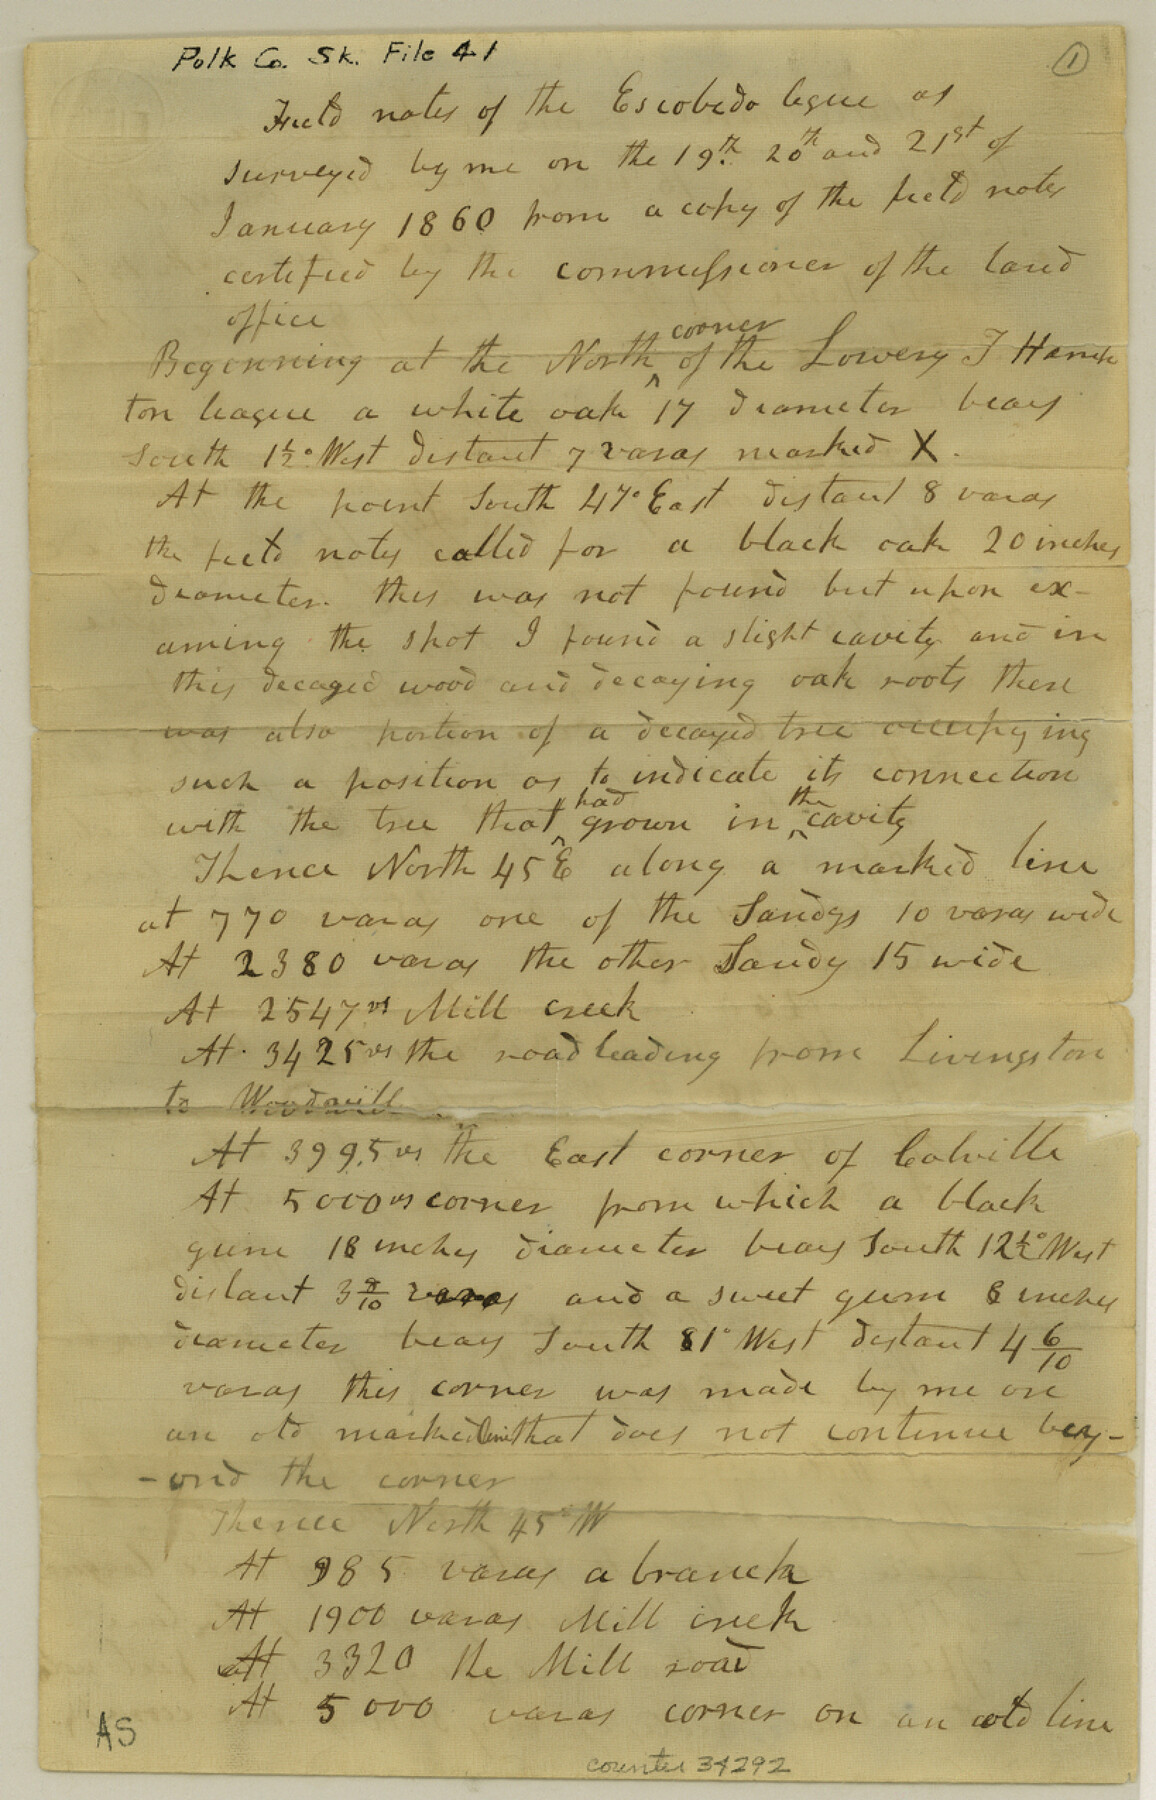 Polk Co. Sk. File 41
1
Field notes of the Escobedo legue as
surveyed by me on the 19th. 20th and 21st of
January 1860 from a copy of the field notes
certified by the commissioner of the land
office
Beginning at the North corner of the Lowery T Hamp
ton league a white oak 17 diameter bears
South 1½° West distant 7 varas marked X.
At the point South 47° East distant 8 varas
the field notes called for a black oak 20 inches
diameter. this was not found but upon ex-
aming the spot I found a slight cavity and in
this decayed wood and decaying oak roots there
was also portion of a decayed tree occupying
such a position as to indicate its connection
with the tree that had grown in the cavity
Thence North 45 E along a marked line
at 770 varas one of the Sandys 10 varas wide
At 2380 varas the other Sandy 15 wide
At 2547 vs Mill creek
At 3425 vs the road leading from Livingston
to Woodvill
At 3995 vs the East corner of Colville
At 5000 vs corner from which a black
gum 18 inches diameter bears South 12½° West
distant 3 9/10 varas and a sweet gum 8 inches
diameter bears South 81° West distant 4 6/10
varas this corner was made by me on
an old marked line that does not continue bey-
-ond the corner
Thence North 45° W
At 985 varas a branch
At 1900 varas Mill creek
At 3320 the Mill road
At 5000 varas corner on an old line
AS
counter 34292